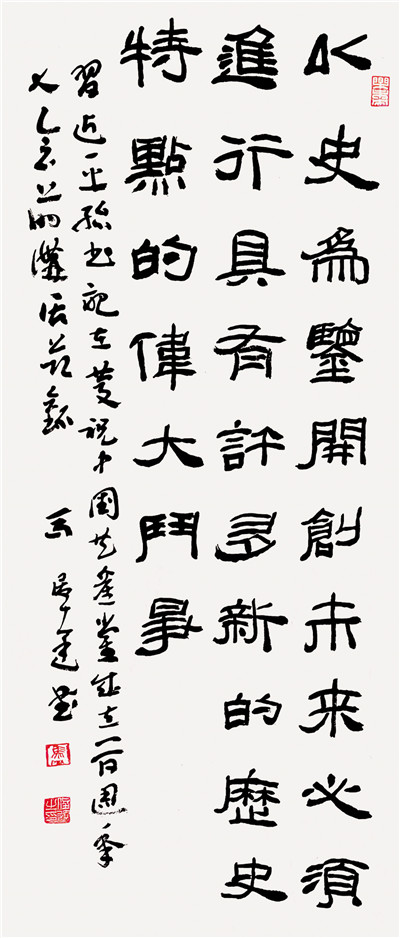 以史為鑒開創未来必須
進行具有許多新的歷史
特點的偉大鬥爭
習近平總書記在慶祝中國共產黨成立一百週年
大會上的講話節錄